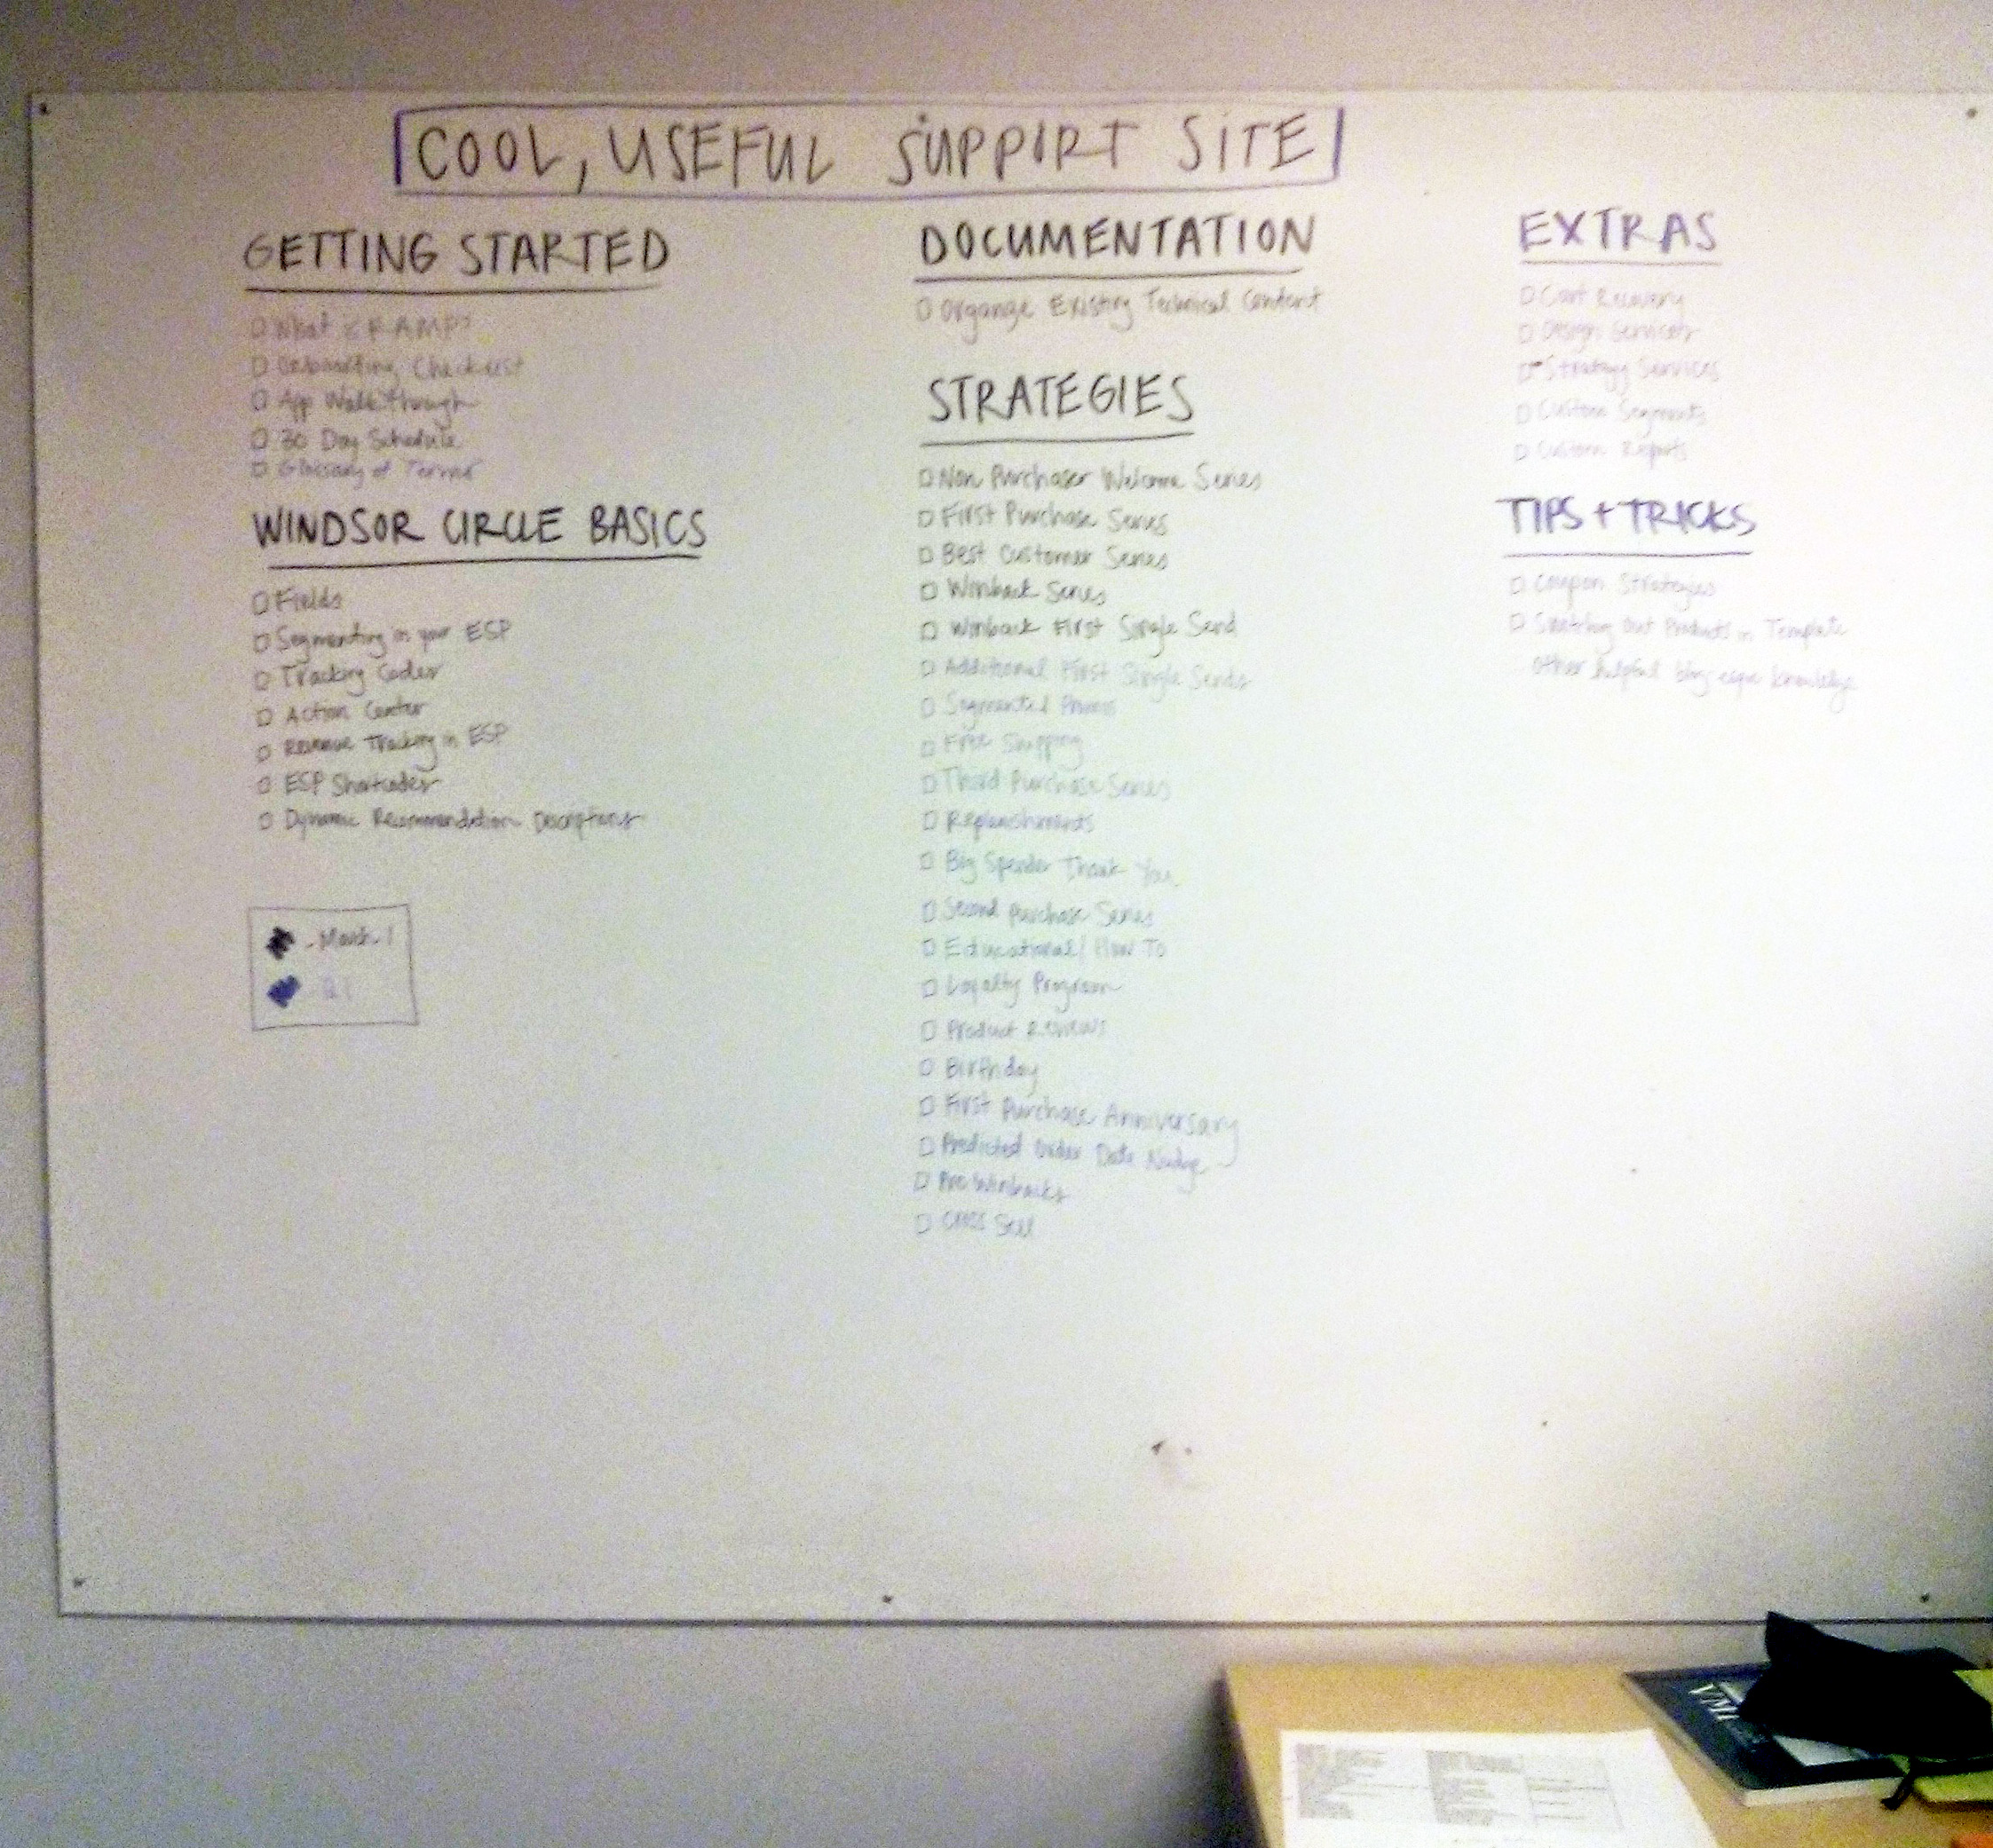 COOL, USEFUL SUPPORT SITE
GETTING STARTED
What is RAMP?
Onboarding Checklist
App Walkthrough
30 Day Schedule
Glossary of Terms
WINDSOR CIRCLE BASICS
Fields
Segmenting in your ESP
Tracking Codes
Action Center
Revenue Tracking in ESP
ESP Shortcodes
Dynamic Recommendation Descriptions
- March 1
- Q1
DOCUMENTATION
Organize Existing Technical Content
STRATEGIES
Non Purchaser Welcome Series
First Purchase Series
Best Customer Series
Winback Series
Winback First Single Send
Additional First Single Sends
Segmented Promos
Free Shipping
Third Purchase Series
Replenishments
Big Spender Thank You
Second Purchase Series
Educational / How To
Loyalty Program
Product Reviews
Birthday
First Purchase Anniversary
Predicted Order Date Nudge
Pre Winbacks
Cross Sell
EXTRAS
Cart Recovery
Design Services
Strategy Services
Custom Segments
Custom Reports
TIPS + TRICKS
Coupon Strategies
Switching Out Products in Template
Other helpful blog-esque knowledge